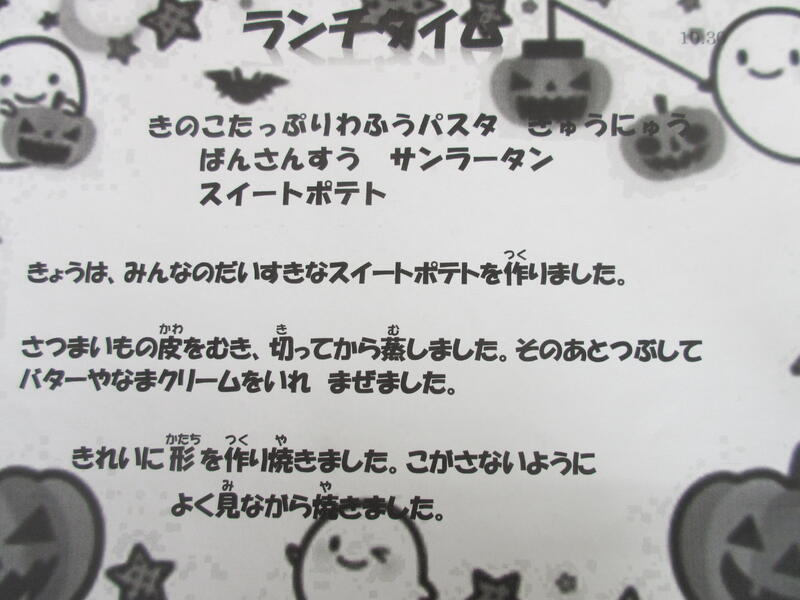 ランチタイム
10.30
きのこたっぷりわふうパスタ　ぎゅうにゅう
ばんさんすう　サンラータン
スイートポテト
きょうは、みんなのだいすきなスイートポテトを作りました。
さつまいもの皮をむき、切ってから蒸しました。そのあとつぶして
バターやなまクリームをいれ　まぜました。
きれいに形を作り焼きました。こがさないように
よく見ながら焼きました。